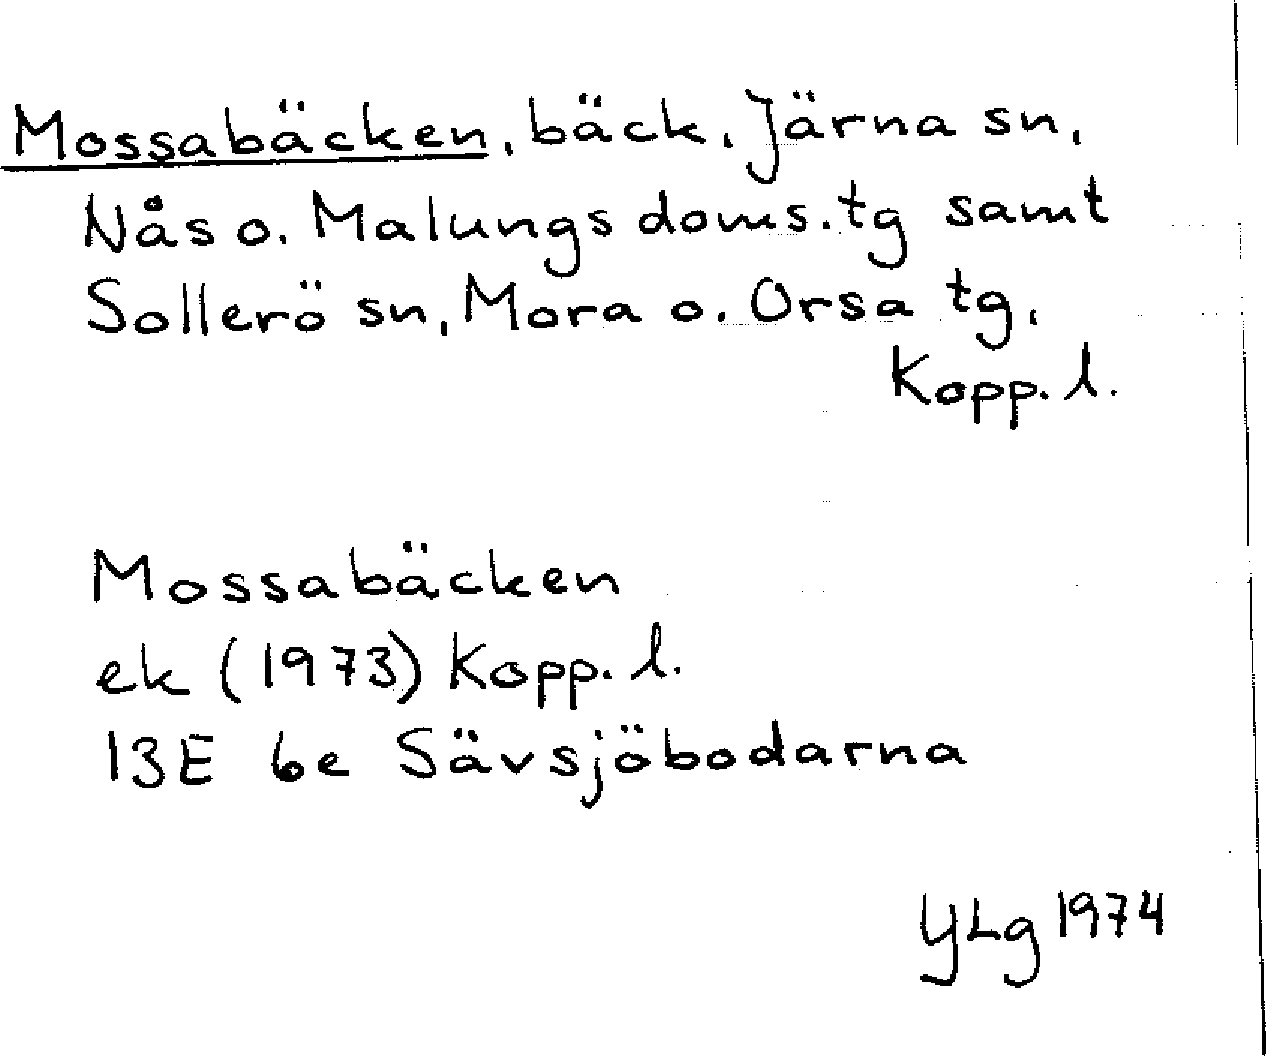 Mossabäcken, bäck, Järna sn,
Nås o. Malungs doms.tg samt
Sollerö sn, Mora o. Orsa tg,
Kopp. l.
Mossabäcken
ek (1973) Kopp. l.
13E 6e Sävsjöbodarna
YLg 1974